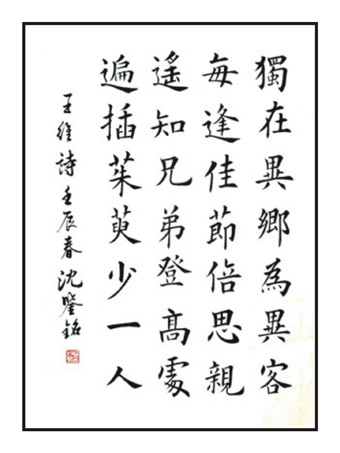 獨在異鄉為異客
每逢佳節倍思親
遙知兄弟登高處
遍插茱萸少一人
王維詩 壬辰春 沈鑒銘